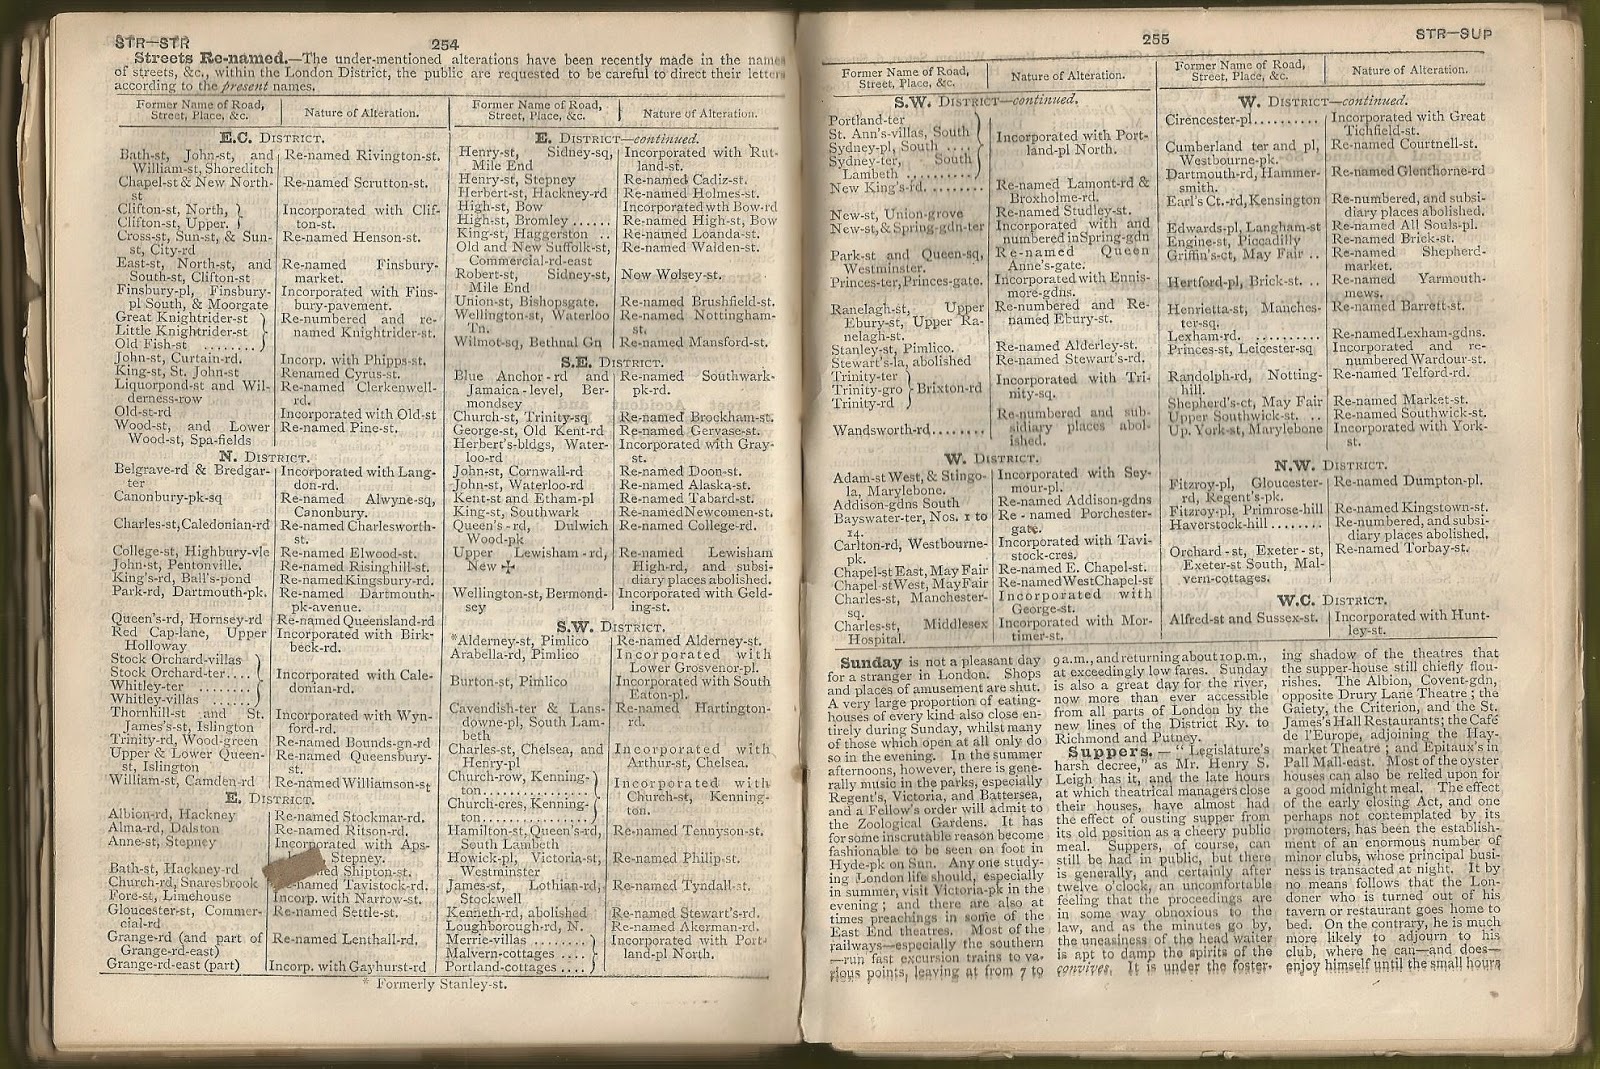 STR—STR
254
Streets Re-named.—The under-mentioned alterations have been recently made in the names
of streets, &c., within the London District, the public are requested to be careful to direct their letters
according to the present names.
Former Name of Road,
Street, Place, &c.
Nature of Alteration.
E.C. DISTRICT.
Bath-st, John-st, and
William-st, Shoreditch
Re-named Rivington-st.
Chapel-st & New North-
st
Re-named Scrutton-st.
Clifton-st, North, }
Clifton-st, Upper. }
Incorporated with Clif-
ton-st.
Cross-st, Sun-st, & Sun-
st, City-rd
Re-named Henson-st.
East-st, North-st, and
South-st, Clifton-st
Re-named Finsbury-
market.
Finsbury-pl, Finsbury-
pl South, & Moorgate
Incorporated with Fins-
bury-pavement.
Great Knightrider-st
Little Knightrider-st
Old Fish-st ........
Re-numbered and re-
named Knightrider-st.
John-st, Curtain-rd.
Incorp. with Phipps-st.
King-st, St. John-st
Renamed Cyrus-st.
Liquorpond-st and Wil-
derness-row
Re-named Clerkenwell-
rd.
Old-st-rd
Incorporated with Old-st
Wood-st, and Lower
Wood-st, Spa-fields
Re-named Pine-st.
N. DISTRICT.
Belgrave-rd & Bredgar-
ter
Incorporated with Lang-
don-rd.
Canonbury-pk-sq
Re-named Alwyne-sq,
Canonbury.
Charles-st, Caledonian-rd
Re-named Charlesworth-
st.
College-st, Highbury-vle
Re-named Elwood-st.
John-st, Pentonville.
Re-named Risinghill-st.
King's-rd, Ball's-pond
Re-named Kingsbury-rd.
Park-rd, Dartmouth-pk.
Re-named Dartmouth-
pk-avenue.
Queen's-rd, Hornsey-rd
Re-named Queensland-rd
Red Cap-lane, Upper
Holloway
Incorporated with Birk-
beck-rd.
Stock Orchard-villas
Stock Orchard-ter....
Whitley-ter ........
Whitley-villas ......
Incorporated with Cale-
donian-rd.
Thornhill-st and St.
James's-st, Islington
Incorporated with Wyn-
ford-rd.
Trinity-rd, Wood-green
Re-named Bounds-gn-rd
Upper & Lower Queen-
st, Islington
Re-named Queensbury-
st.
William-st, Camden-rd
Re-named Williamson-st
E. DISTRICT.
Albion-rd, Hackney
Re-named Stockmar-rd.
Alma-rd, Dalston
Re-named Ritson-rd.
Anne-st, Stepney
Incorporated with Aps-
Stepney.
Bath-st, Hackney-rd
ed Shipton-st.
Church-rd, Snaresbrook
e-named Tavistock-rd.
Fore-st, Limehouse
Incorp. with Narrow-st.
Gloucester-st, Commer-
cial-rd
Re-named Settle-st.
Grange-rd (and part of
Grange-rd-east)
Re-named Lenthall-rd.
Grange-rd-east (part)
Incorp. with Gayhurst-rd
Former Name of Road,
Street, Place, &c.
Nature of Alteration.
E. DISTRICT—continued.
Henry-st, Sidney-sq,
Mile End
Incorporated with Rut-
land-st.
Henry-st, Stepney
Re-named Cadiz-st.
Herbert-st, Hackney-rd
Re-named Holmes-st.
High-st, Bow
Incorporated wth Bow-rd
High-st, Bromley ......
Re-named High-st, Bow
King-st, Haggerston ..
Re-named Loanda-st.
Old and New Suffolk-st,
Commercial-rd-east
Re-named Walden-st.
Robert-st, Sidney-st,
Mile End
Now Wolsey-st.
Union-st, Bishopsgate.
Re-named Brushfield-st.
Wellington-st, Waterloo
Tn.
Re-named Nottingham-
st.
Wilmot-sq, Bethnal Gn
Re-named Mansford-st.
S.E. DISTRICT.
Blue Anchor-rd and
Jamaica-level, Ber-
mondsey
Re-named Southwark-
pk-rd.
Church-st, Trinity-sq
Re-named Brockham-st.
George-st, Old Kent-rd
Re-named Gervase-st.
Herbert's-bldgs, Water-
loo-rd
Incorporated with Gray-
st.
John-st, Cornwall-rd
Re-named Doon-st.
John-st, Waterloo-rd
Re-named Alaska-st.
Kent-st and Etham-pl
Re-named Tabard-st.
King-st, Southwark
Re-named Newcomen-st.
Queen's-rd, Dulwich
Wood-pk
Re-named College-rd.
Upper Lewisham-rd,
New ✠
Re-named Lewisham
High-rd, and subsi-
diary places abolished.
Wellington-st, Bermond-
sey
Incorporated with Geld-
ing-st.
S.W. DISTRICT.
*Alderney-st, Pimlico
Re-named Alderney-st.
Arabella-rd, Pimlico
Incorporated with
Lower Grosvenor-pl.
Burton-st, Pimlico
Incorporated with South
Eaton-pl.
Cavendish-ter & Lans-
downe-pl, South Lam-
beth
Re-named Hartington-
rd.
Charles-st, Chelsea, and
Henry-pl
Incorporated with
Arthur-st, Chelsea.
Church-row, Kenning-
ton................
Church-cres, Kenning-
ton................
Incorporated with
Church-st, Kenning-
ton.
Hamilton-st, Queen's-rd,
South Lambeth
Re-named Tennyson-st.
Howick-pl, Victoria-st,
Westminster
Re-named Philip-st.
James-st, Lothian-rd,
Stockwell
Re-named Tyndall-st.
Kenneth-rd, abolished
Re-named Stewart's-rd.
Loughborough-rd, N.
Re-named Akerman-rd.
Merrie-villas ........
Malvern-cottages ....
Portland-cottages ....
Incorporated with Port-
land-pl North.
* Formerly Stanley-st.
255
STR—SUP
Former Name of Road,
Street, Place, &c.
Nature of Alteration.
S.W. DISTRICT—continued.
Portland-ter
St. Ann's-villas, South
Sydney-pl, South ....
Sydney-ter, South
Lambeth ..........
Incorporated with Port-
land-pl North.
New King's-rd. ........
Re-named Lamont-rd &
Broxholme-rd.
New-st, Union-grove
Re-named Studley-st.
New-st, & Spring-gdn-ter
Incorporated with and
numbered in Spring-gdn
Park-st and Queen-sq,
Westminster.
Re-named Queen
Anne's-gate.
Princes-ter, Princes-gate.
Incorporated with Ennis-
more-gdns.
Ranelagh-st, Upper
Ebury-st, Upper Ra-
nelagh-st.
Re-numbered and Re-
named Ebury-st.
Stanley-st, Pimlico.
Re-named Alderley-st.
Stewart's-la, abolished
Re-named Stewart's-rd.
Trinity-ter
Trinity-gro } Brixton-rd
Trinity-rd
Incorporated with Tri-
nity-sq.
Wandsworth-rd........
Re-numbered and sub-
sidiary places abol-
ished.
W. DISTRICT.
Adam-st West, & Stingo-
la, Marylebone.
Incorporated with Sey-
mour-pl.
Addison-gdns South
Re-named Addison-gdns
Bayswater-ter, Nos. 1 to
14.
Re-named Porchester-
gate.
Carlton-rd, Westbourne-
pk.
Incorporated with Tavi-
stock-cres.
Chapel-st East, May Fair
Re-named E. Chapel-st.
Chapel-st West, May Fair
Re-named West Chapel-st
Charles-st, Manchester-
sq.
Incorporated with
George-st.
Charles-st, Middlesex
Hospital.
Incorporated with Mor-
timer-st.
Former Name of Road,
Street, Place, &c.
Nature of Alteration.
W. DISTRICT—continued.
Cirencester-pl..........
Incorporated with Great
Tichfield-st.
Cumberland ter and pl,
Westbourne-pk.
Re-named Courtnell-st.
Dartmouth-rd, Hammer-
smith.
Re-named Glenthorne-rd
Earl's Ct.-rd, Kensington
Re-numbered, and subsi-
diary places abolished.
Edwards-pl, Langham-st
Re-named All Souls-pl.
Engine-st, Piccadilly
Re-named Brick-st.
Griffin's-ct, May Fair ..
Re-named Shepherd-
market.
Hertford-pl, Brick-st. ..
Re-named Yarmouth-
mews.
Henrietta-st, Manches-
ter-sq.
Re-named Barrett-st.
Lexham-rd. ..........
Re-named Lexham-gdns.
Princes-st, Leicester-sq
Incorporated and re-
numbered Wardour-st.
Randolph-rd, Notting-
hill.
Re-named Telford-rd.
Shepherd's-ct, May Fair
Re-named Market-st.
Upper Southwick-st. ..
Re-named Southwick-st.
Up. York-st, Marylebone
Incorporated with York-
st.
N.W. DISTRICT.
Fitzroy-pl, Gloucester-
rd, Regent's-pk.
Re-named Dumpton-pl.
Fitzroy-pl, Primrose-hill
Re-named Kingstown-st.
Haverstock-hill ........
Re-numbered, and subsi-
diary places abolished.
Orchard-st, Exeter-st,
Exeter-st South, Mal-
vern-cottages.
Re-named Torbay-st.
W.C. DISTRICT.
Alfred-st and Sussex-st.
Incorporated with Hunt-
ley-st.
Sunday is not a pleasant day
for a stranger in London. Shops
and places of amusement are shut.
A very large proportion of eating-
houses of every kind also close en-
tirely during Sunday, whilst many
of those which open at all only do
so in the evening. In the summer
afternoons, however, there is gene-
rally music in the parks, especially
Regent's, Victoria, and Battersea,
and a Fellow's order will admit to
the Zoological Gardens. It has
for some inscrutable reason become
fashionable to be seen on foot in
Hyde-pk on Sun. Any one study-
ing London life should, especially
in summer, visit Victoria-pk in the
evening; and there are also at
times preachings in some of the
East End theatres. Most of the
railways—especially the southern
—run fast excursion trains to va-
rious points, leaving at from 7 to
9 a.m., and returning about 10 p.m.,
at exceedingly low fares. Sunday
is also a great day for the river,
now more than ever accessible
from all parts of London by the
new lines of the District Ry. to
Richmond and Putney.
Suppers.—"Legislature's
harsh decree," as Mr. Henry S.
Leigh has it, and the late hours
at which theatrical managers close
their houses, have almost had
the effect of ousting supper from
its old position as a cheery public
meal. Suppers, of course, can
still be had in public, but there
is generally, and certainly after
twelve o'clock, an uncomfortable
feeling that the proceedings are
in some way obnoxious to the
law, and as the minutes go by,
the uneasiness of the head waiter
is apt to damp the spirits of the
convives. It is under the foster-
ing shadow of the theatres that
the supper-house still chiefly flou-
rishes. The Albion, Covent-gdn,
opposite Drury Lane Theatre; the
Gaiety, the Criterion, and the St.
James's Hall Restaurants; the Café
de l'Europe, adjoining the Hay-
market Theatre; and Epitaux's in
Pall Mall-east. Most of the oyster
houses can also be relied upon for
a good midnight meal. The effect
of the early closing Act, and one
perhaps not contemplated by its
promoters, has been the establish-
ment of an enormous number of
minor clubs, whose principal busi-
ness is transacted at night. It by
no means follows that the Lon-
doner who is turned out of his
tavern or restaurant goes home to
bed. On the contrary, he is much
more likely to adjourn to his
club, where he can—and does—
enjoy himself until the small hours